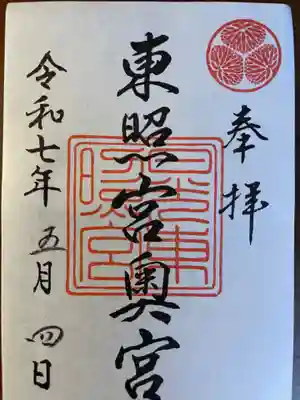 奉拝
東照宮奥宮
令和七年 五月 四日